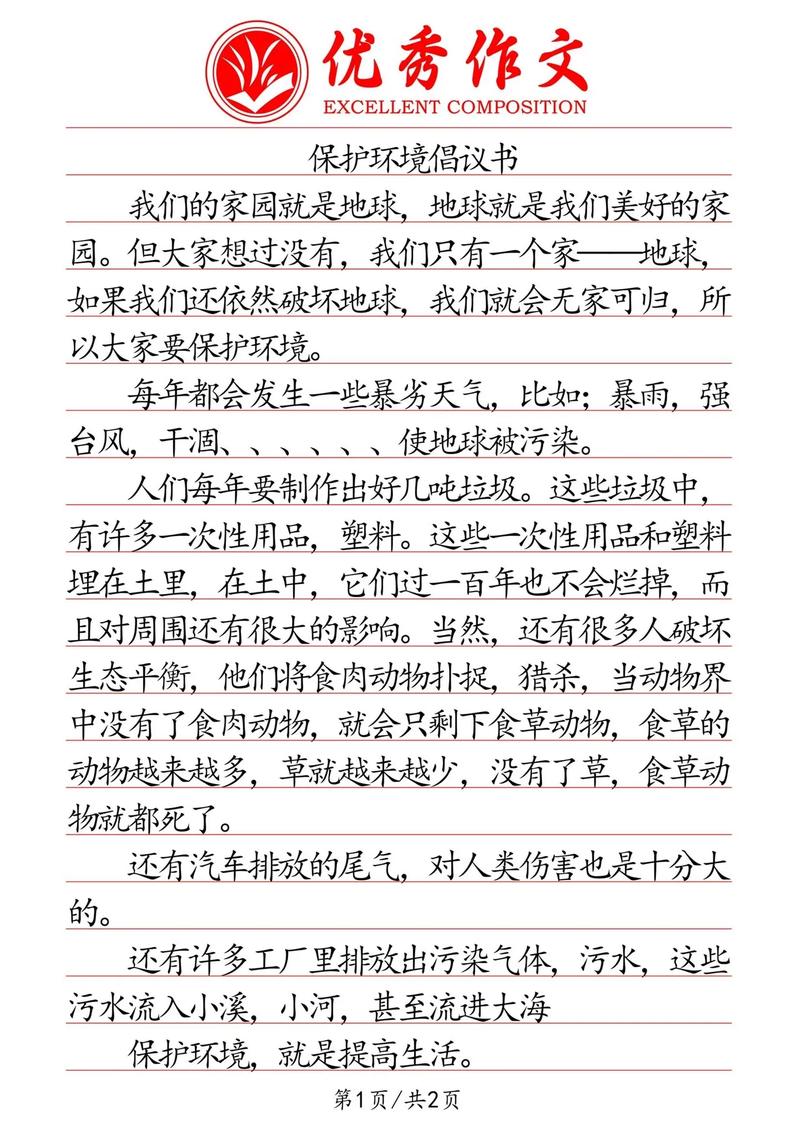 优秀作文
EXCELLENT COMPOSITION
保护环境倡议书
我们的家园就是地球，地球就是我们美好的家
园。但大家想过没有，我们只有一个家——地球，
如果我们还依然破坏地球，我们就会无家可归，所
以大家要保护环境。
每年都会发生一些暴劣天气，比如；暴雨，强
台风，干涸、、、、、、使地球被污染。
人们每年要制作出好几吨垃圾。这些垃圾中，
有许多一次性用品，塑料。这些一次性用品和塑料
埋在土里，在土中，它们过一百年也不会烂掉，而
且对周围还有很大的影响。当然，还有很多人破坏
生态平衡，他们将食肉动物扑捉，猎杀，当动物界
中没有了食肉动物，就会只剩下食草动物，食草的
动物越来越多，草就越来越少，没有了草，食草动
物就都死了。
还有汽车排放的尾气，对人类伤害也是十分大
的。
还有许多工厂里排放出污染气体，污水，这些
污水流入小溪，小河，甚至流进大海
保护环境，就是提高生活。
第1页/共2页